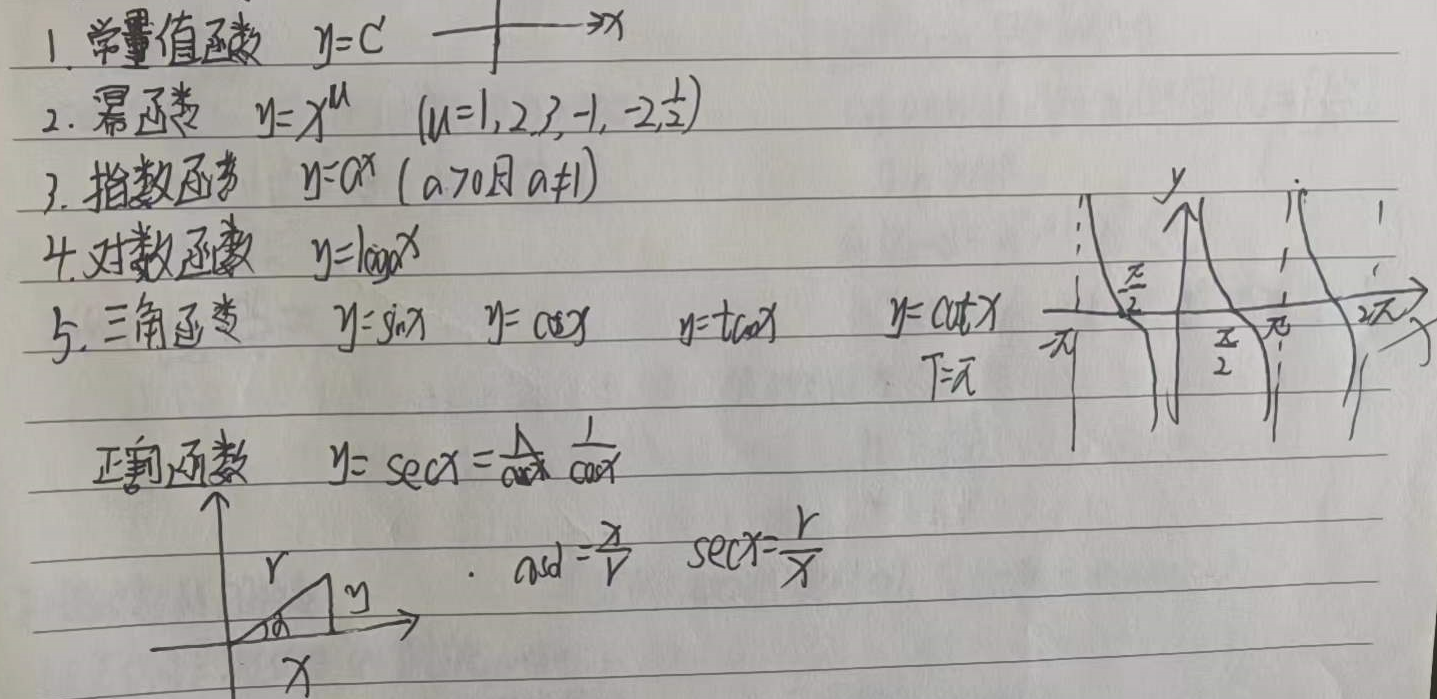 1. 常量值函数 y=C x
2. 幂函数 y=x^u (u=1,2,3,-1,-2,1/2)
3. 指数函数 y=a^x (a>0且a≠1)
4. 对数函数 y=logax
5. 三角函数 y=sinx y=cosx y=tanx y=cotx
T=π
y
π/2
-π π/2 π 2π x
正割函数 y=secx= 1/cosx
r y α x
cosα=x/r secx=r/x